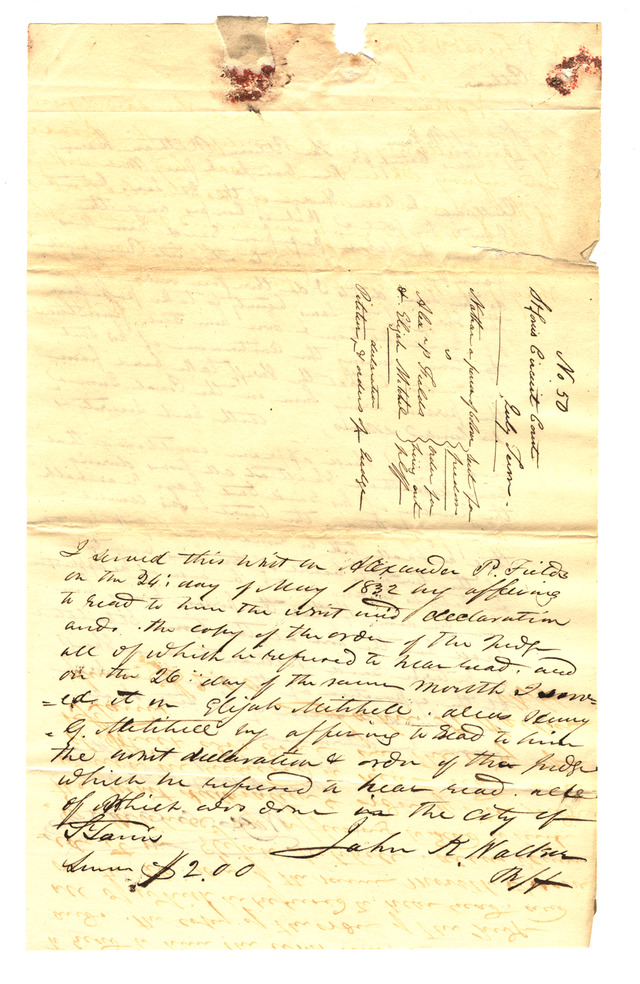 No 50
St Louis Circuit Court
July Term.
Nathan a person of colour suit for
vs freedom
Alex P Fields order for
& Elijah Mitchl suing out
declaration
Petition, & orders of Judge
I served this writ on Alexander P. Fields
on the 24: day of May 1832 by affering
to read to him the writ and declaration
and the copy of the order of the Judge
all of which he refused to hear read and
on the 26: day of the same month I serv=
=ed it on Elijah Mitchell. alias Henry
G. Mitchell by affering to read to him
the writ declaration & order of the Judge
which he refused to hear read. all
of which was done in the City of
St Louis
John K. Walker
Shff
$2.00